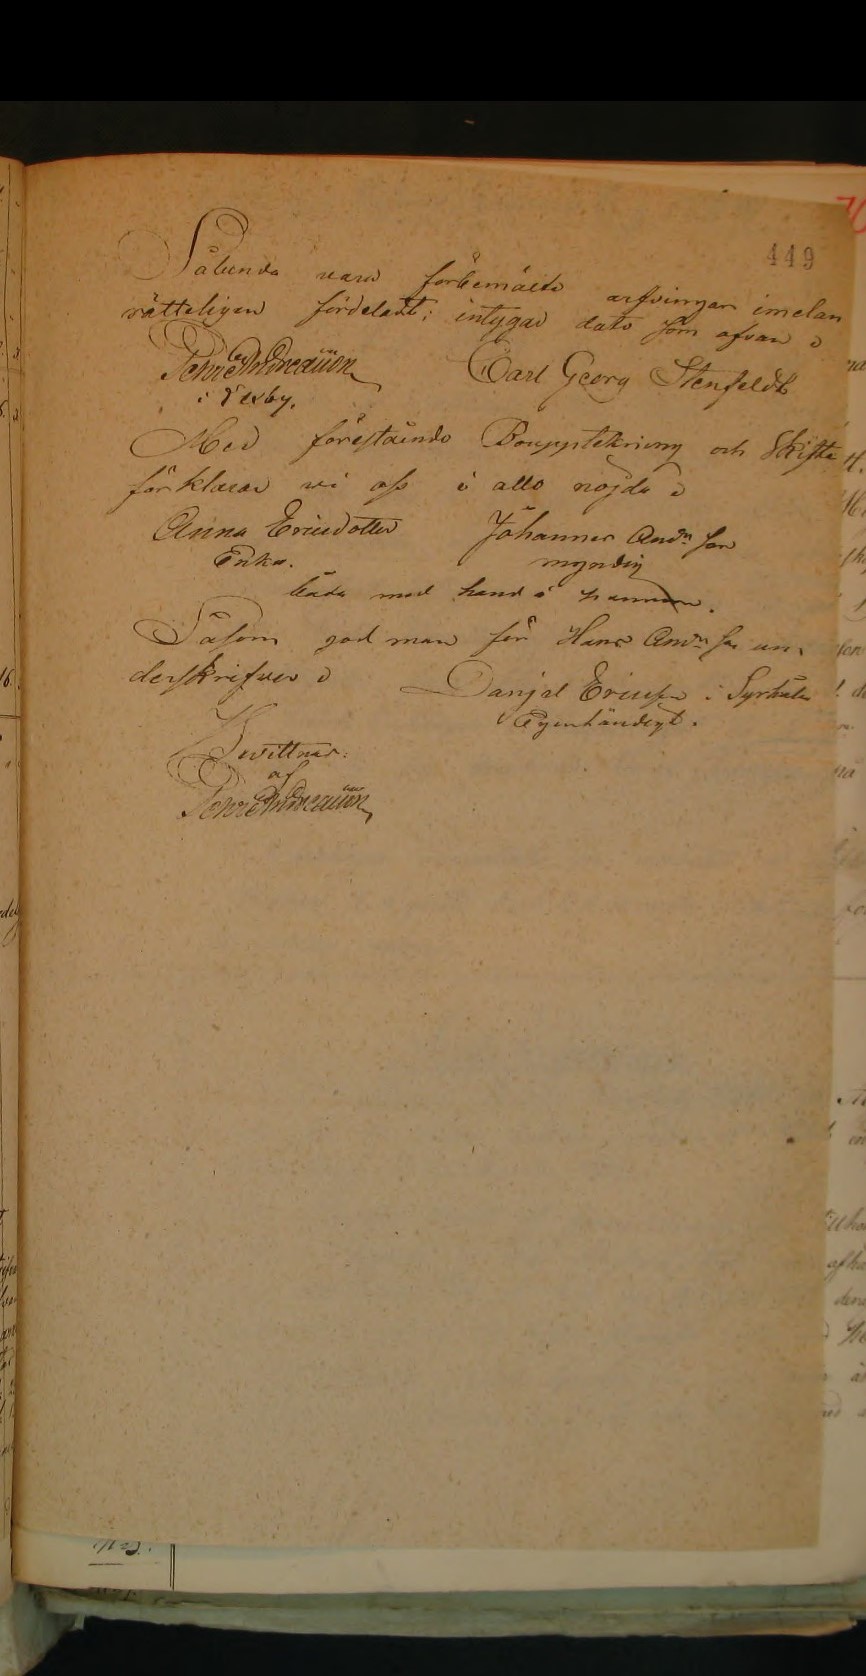 449
Sålunda vara förbemälte arfvingar imelan
rätteligen fördeladt; intygas dato som ofvan
Pehr Andreasson Carl Georg Stenfeldt
i Vesby.
Med förestående Bouppteckning och Skifte
förklarar vi oss i allo nöjda
Anna Ericsdotter Johannes Andrs son
Enka. myndig
båda med hand å pennan.
Såsom god man för Hans Andrs son un-
derskrifver Danjal Ericsson i Syrhåla
Egenhändigt.
Bevittnas:
af
Pehr Andreasson